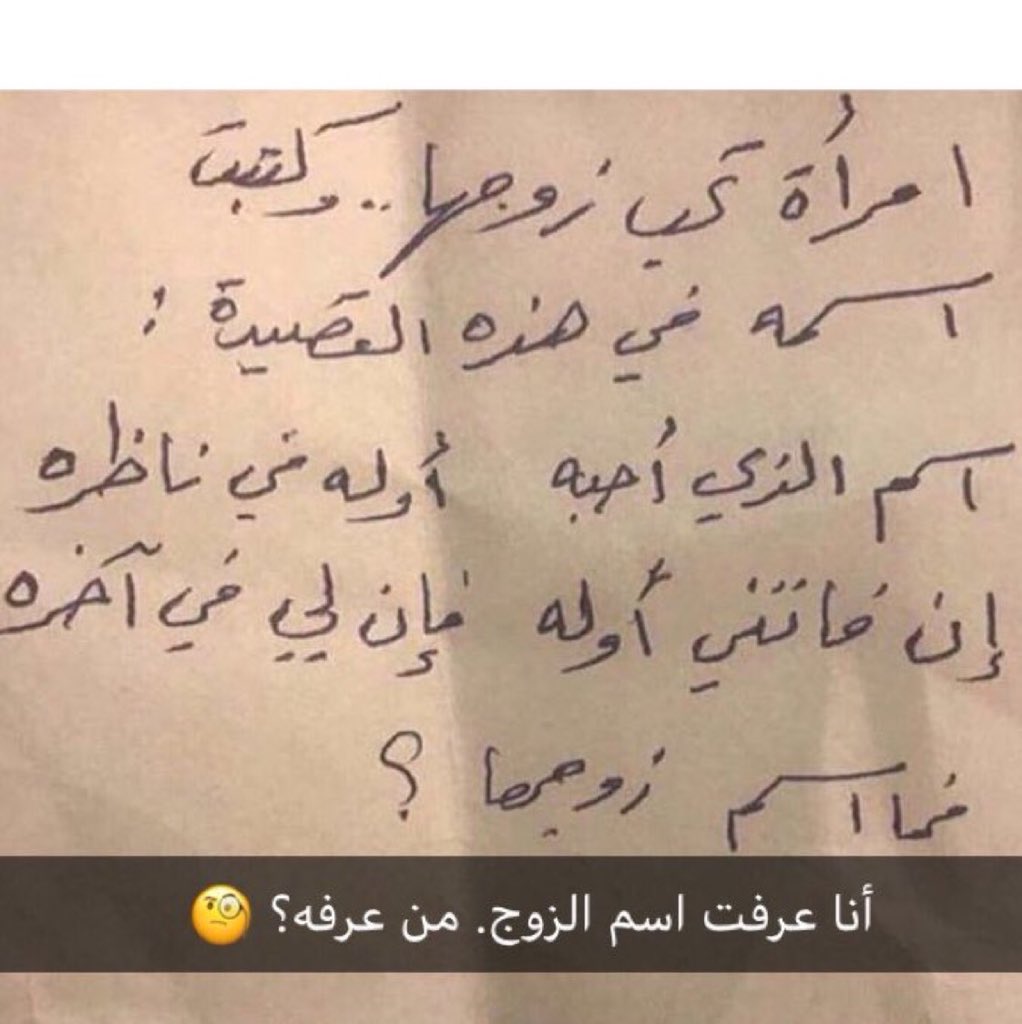 امرأة تحب زوجها .. وَكتبت
اسمه في هذه القصيدة :
اسم الذي أُحبه أُوله في ناظره
إن فاتني أوله فإن لي في آخره
فما اسم زوجها ؟
أنا عرفت اسم الزوج. من عرفه؟ 🧐